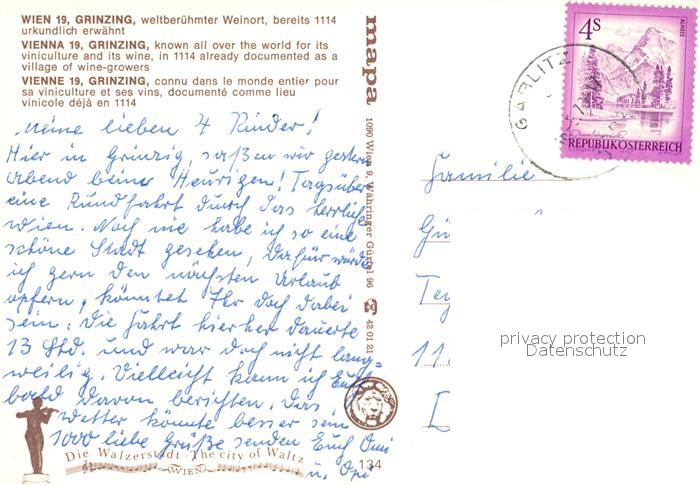 WIEN 19, GRINZING, weltberühmter Weinort, bereits 1114
urkundlich erwähnt
VIENNA 19, GRINZING, known all over the world for its
viniculture and its wine, in 1114 already documented as a
village of wine-growers
VIENNE 19, GRINZING, connu dans le monde entier pour
sa viniculture et ses vins, documenté comme lieu
vinicole déjà en 1114
Meine lieben 4 Kinder!
Hier in Grinzig, saßen wir gestern
Abend beim Heurigen! Tagsüber
eine Rundfahrt durch das herrliche
Wien. Noch nie habe ich so eine
schöne Stadt gesehen, dafür würde
ich gern den nächsten Urlaub
opfern, könntet Ihr doch dabei
sein. Die Fahrt hierher dauerte
13 Std. und war doch nicht lang-
weilig. Vielleicht kann ich Euch
bald davon berichten. Das
Wetter könnte besser sein
1000 liebe Grüße senden Euch Omi
u. Opi
Die Walzerstadt · The city of Waltz
WIEN
134
mapa
1090 Wien 9, Währinger Gürtel 96
42 01 21
4S
ALMSEE
REPUBLIK ÖSTERREICH
GABLITZ
Familie
Gü
Te
11
privacy protection
Datenschutz